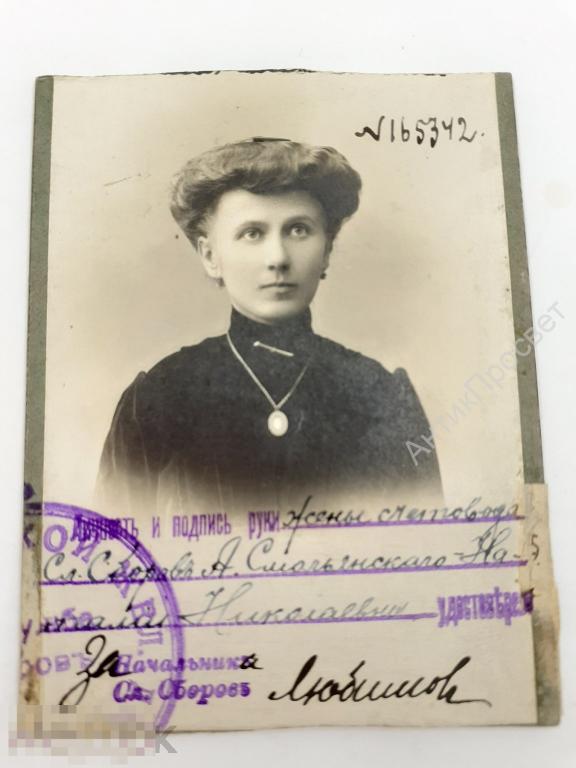 №165342.
Личность и подпись руки жены счетовода
Сл. Сборовъ А. Смольянского На-
талии Николаевны удостовѣряю
За Начальника
Сл. Сборовъ Любимов
АнтикПросвет